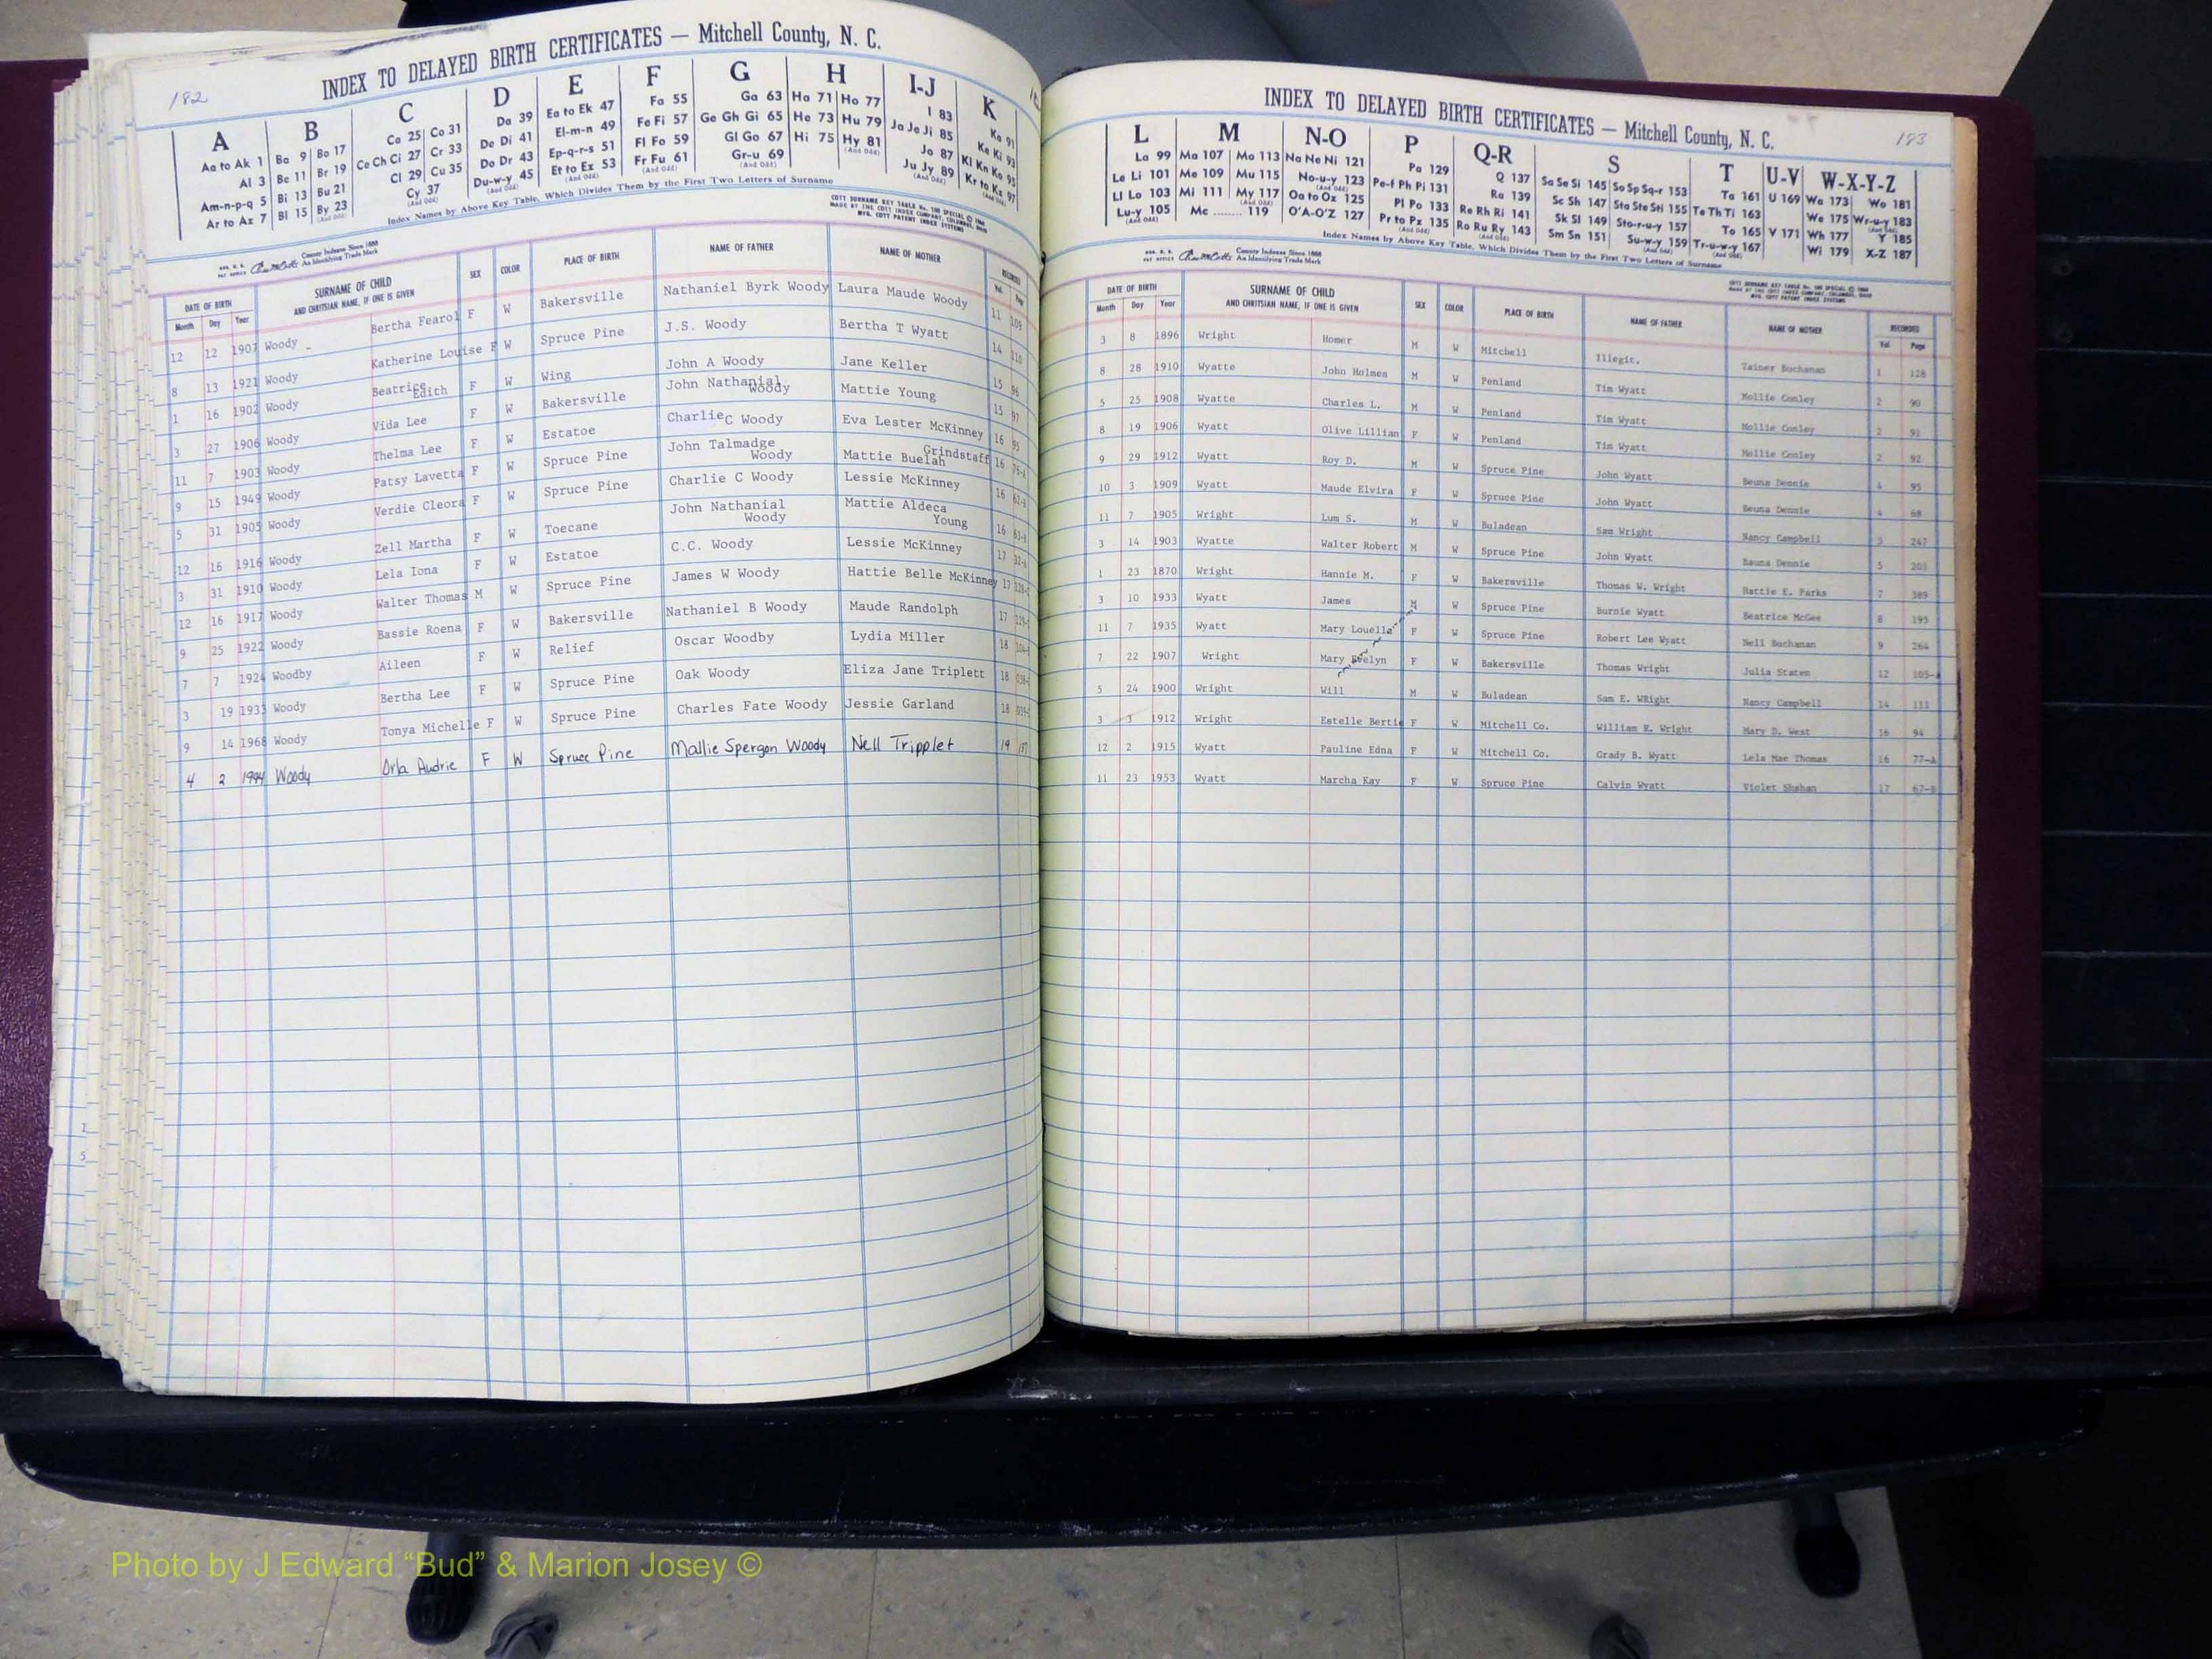 182
INDEX TO DELAYED BIRTH CERTIFICATES — Mitchell County, N. C.
A B C D E F G H I-J K
Aa to Ak 1 Ba 9 Bo 17 Ca 25 Co 31 Da 39 Ea to Ek 47 Fa 55 Ga 63 Ha 71 Ho 77 I 83 Ka 91
Al 3 Be 11 Br 19 Ce Ch Ci 27 Cr 33 De Di 41 El-m-n 49 Fe Fi 57 Ge Gh Gi 65 He 73 Hu 79 Ja Je Ji 85 Ke Ki 93
Am-n-p-q 5 Bi 13 Bu 21 Cl 29 Cu 35 Do Dr 43 Ep-q-r-s 51 Fl Fo 59 Gl Go 67 Hi 75 Hy 81 Jo 87 Kl Kn Ko 95
Ar to Az 7 Bl 15 By 23 Cy 37 Du-w-y 45 Et to Ez 53 Fr Fu 61 Gr-u 69 Ju Jy 89 Kr to Kz 97
Index Names by Above Key Table, Which Divides Them by the First Two Letters of Surname
County Indexes Since 1888
An Identifying Trade Mark
DATE OF BIRTH SURNAME OF CHILD SEX COLOR PLACE OF BIRTH NAME OF FATHER NAME OF MOTHER RECORDED
Month Day Year AND CHRITSIAN NAME, IF ONE IS GIVEN Vol. Page
12 12 1907 Woody Bertha Fearol F W Bakersville Nathaniel Byrk Woody Laura Maude Woody 11 109
8 13 1921 Woody Katherine Louise F W Spruce Pine J.S. Woody Bertha T Wyatt 14 110
1 16 1902 Woody Beatrice Edith F W Wing John A Woody Jane Keller 15 96
3 27 1906 Woody Vida Lee F W Bakersville John Nathanial Woody Mattie Young 15 97
11 7 1903 Woody Thelma Lee F W Estatoe Charlie C Woody Eva Lester McKinney 16 95
9 15 1949 Woody Patsy Lavetta F W Spruce Pine John Talmadge Woody Mattie Buelah Grindstaff 16 76-A
5 31 1905 Woody Verdie Cleora F W Spruce Pine Charlie C Woody Lessie McKinney 16
12 16 1916 Woody Zell Martha F W Toecane John Nathanial Woody Mattie Aldeca Young 16
3 31 1910 Woody Lela Iona F W Estatoe C.C. Woody Lessie McKinney 17
12 16 1917 Woody Walter Thomas M W Spruce Pine James W Woody Hattie Belle McKinney 17
9 25 1922 Woody Bassie Roena F W Bakersville Nathaniel B Woody Maude Randolph 17
7 7 1924 Woodby Aileen F W Relief Oscar Woodby Lydia Miller 18
3 19 1933 Woody Bertha Lee F W Spruce Pine Oak Woody Eliza Jane Triplett 18
9 14 1968 Woody Tonya Michelle F W Spruce Pine Charles Fate Woody Jessie Garland 18
4 2 Woody Orla Audrie F W Spruce Pine Mallie Spergon Woody Nell Tripplet 19
183
INDEX TO DELAYED BIRTH CERTIFICATES — Mitchell County, N. C.
L M N-O P Q-R S T U-V W-X-Y-Z
La 99 Ma 107 Mo 113 Na Ne Ni 121 Pa 129 Q 137 Sa Se Si 145 So Sp Sq-r 153 Ta 161 U 169 Wa 173 Wo 181
Le Li 101 Me 109 Mu 115 No-u-y 123 Pe-f Ph Pi 131 Ra 139 Sc Sh 147 Sta Ste Sti 155 Te Th Ti 163 We 175 Wr-u-y 183
Ll Lo 103 Mi 111 My 117 Oa to Oz 125 Pl Po 133 Re Rh Ri 141 Sk Sl 149 Sto-r-u-y 157 To 165 V 171 Wh 177 Y 185
Lu-y 105 Mc ........ 119 O'A-O'Z 127 Pr to Pz 135 Ro Ru Ry 143 Sm Sn 151 Su-w-y 159 Tr-u-w-y 167 Wi 179 X-Z 187
Index Names by Above Key Table, Which Divides Them by the First Two Letters of Surname
County Indexes Since 1888
An Identifying Trade Mark
DATE OF BIRTH SURNAME OF CHILD SEX COLOR PLACE OF BIRTH NAME OF FATHER NAME OF MOTHER RECORDED
Month Day Year AND CHRITSIAN NAME, IF ONE IS GIVEN Vol. Page
3 8 1896 Wright Homer M W Mitchell Illegit. Tainer Buchanan 1 128
8 28 1910 Wyatte John Holmes M W Penland Tim Wyatt Mollie Conley 2 90
5 25 1908 Wyatte Charles L. M W Penland Tim Wyatt Mollie Conley 2 91
8 19 1906 Wyatt Olive Lillian F W Penland Tim Wyatt Mollie Conley 2 92
9 29 1912 Wyatt Roy D. M W Spruce Pine John Wyatt Beuna Dennie 4 95
10 3 1909 Wyatt Maude Elvira F W Spruce Pine John Wyatt Beuna Dennie 4 68
11 7 1905 Wright Lum S. M W Buladean Sam Wright Nancy Campbell 5 247
3 14 1903 Wyatte Walter Robert M W Spruce Pine John Wyatt Dennie 5
1 23 1870 Wright Hannie M. F W Bakersville Thomas W. Wright Hattie E. Parks 7 389
3 10 1933 Wyatt James M W Spruce Pine Burnie Wyatt Beatrice McGee 8 195
11 7 1935 Wyatt Mary Louella F W Spruce Pine Robert Lee Wyatt Nell Buchanan 9 264
7 22 1907 Wright Mary Evelyn F W Bakersville Thomas Wright Julia Staten 12 105-A
5 24 1900 Wright Will M W Buladean Sam E. WRight Nancy Campbell 14 111
3 3 1912 Wright Estelle Bertie F W Mitchell Co. William R. Wright Mary D. West 16 94
12 2 1915 Wyatt Pauline Edna F W Mitchell Co. Grady B. Wyatt Lela Mae Thomas 16 77-A
11 23 1953 Wyatt Marcha Kay F W Spruce Pine Calvin Wyatt Violet Shehan 17 67-B
Photo by J Edward “Bud” & Marion Josey ©